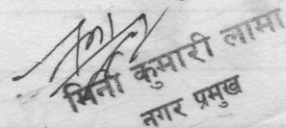 मिना कुमारी लामा
नगर प्रमुख